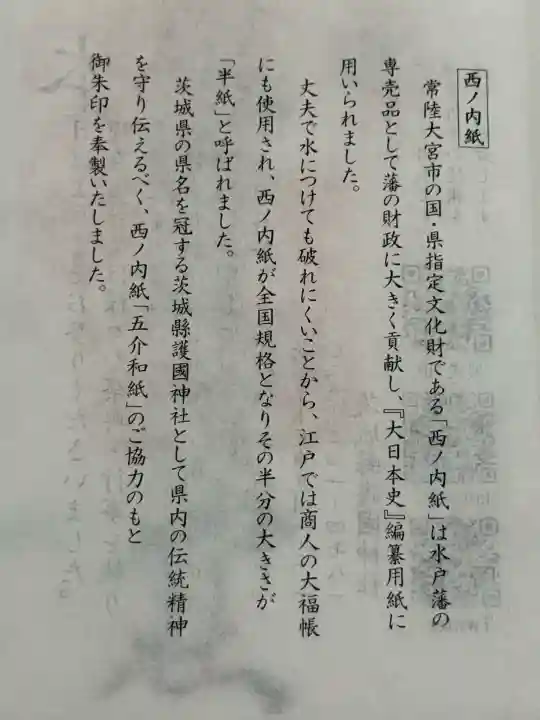 西ノ内紙
常陸大宮市の国・県指定文化財である「西ノ内紙」は水戸藩の
専売品として藩の財政に大きく貢献し、『大日本史』編纂用紙に
用いられました。
丈夫で水につけても破れにくいことから、江戸では商人の大福帳
にも使用され、西ノ内紙が全国規格となりその半分の大きさが
「半紙」と呼ばれました。
茨城県の県名を冠する茨城縣護國神社として県内の伝統精神
を守り伝えるべく、西ノ内紙「五介和紙」のご協力のもと
御朱印を奉製いたしました。